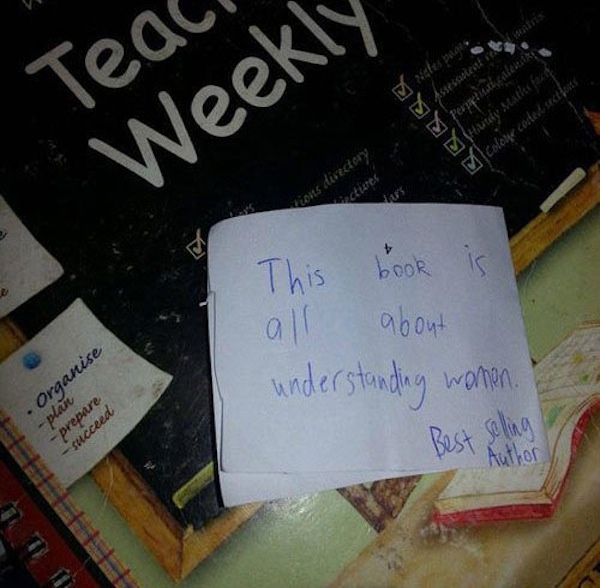 Teac
Weekly
Notes pages
Assessment
matrix
Perpetual calendar
Handy Maths facts
Colour coded sections
tions directory
jectives
ars
This book is
all about
understanding women.
Best Selling
Author
• organise
- plan
- prepare
- succeed